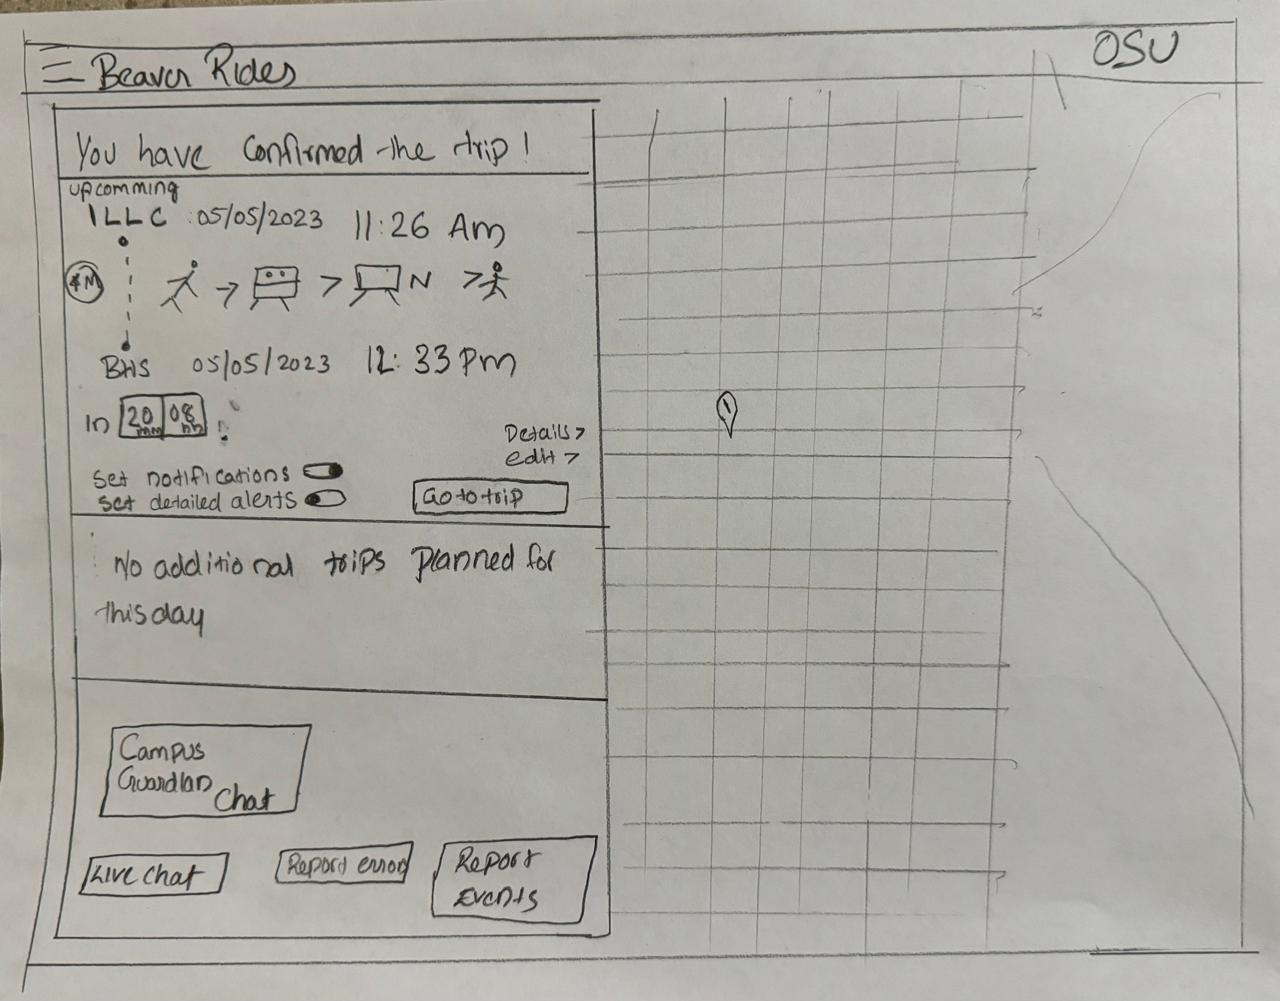 Beaver Rides
OSU
You have confirmed the trip!
upcomming
ILLC : 05/05/2023 11:26 Am
N
BHS 05/05/2023 12:33 Pm
In 20 08
Details >
edit >
Set notifications
Set detailed alerts
Go to trip
No additional trips planned for
this day
Campus
Guardian
Chat
Live chat
Report error
Report
Events